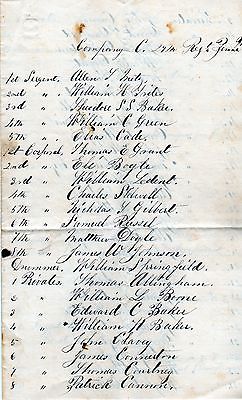 Company C. 27th Reg't Penna
1st Sergent, Allen F.
2nd " William H.
3rd " Theodore S. S. Baker
4th " William C Green
5th " Elias Cade
1st Corporal, Thomas E Grant
2nd " Edw Boyle
3rd " William Ledent
4th " Charles Stilwell
5th " Nicholas J Gilbert
6th " Samuel Russel
7th " Matthew Digle
8th " James W Johnson
Drummer, William Springfield
1 Privates Thomas Allingham
2 William L Bone
3 Edward C Baker
4 William H Baker
5 John Clavey
6 James Connerton
7 Thomas Courtney
8 Patrick Cannon